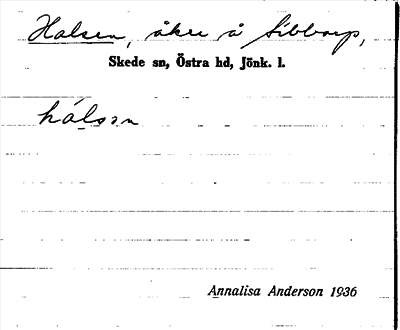 Halsen, åker å Sibbarp,
Skede sn, Östra hd, Jönk. l.
hálsən
Annalisa Anderson 1936